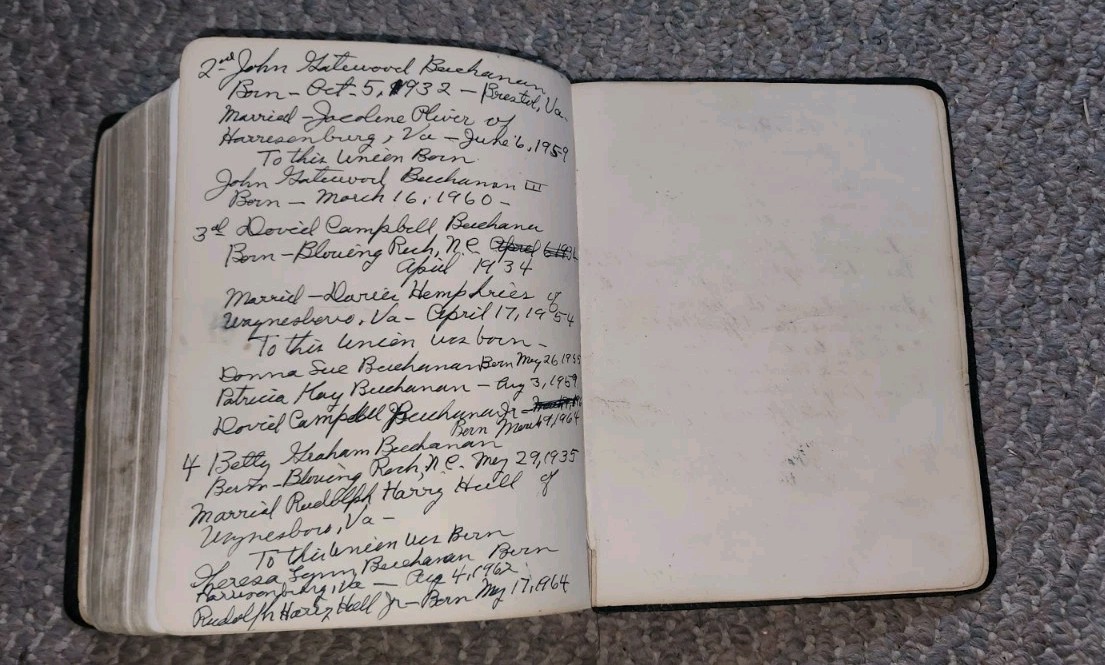 2nd John Gatewood Buchanan
Born - Oct-5, 1932 - Bristol, Va-
Married - Jacoline Oliver of
Harrisonburg, Va - June 6, 1959
To this Union Born
John Gatewood Buchanan III
Born - March 16, 1960 -
3rd David Campbell Buchanan
Born - Blowing Rock, N.C. April
April 1934
Married - Humphries of
Waynesboro, Va - April 17, 1954
To this Union was born -
Donna Sue Buchanan Born May 26, 195
Patricia Kay Buchanan - Aug 3, 1957
David Campbell Buchanan Jr -
Born March 9, 1964
4 Betty Graham Buchanan
Born - Blowing Rock, N.C. May 29, 1935
Married Rudolph Harry Hull of
Waynesboro, Va -
To this Union was Born
Theresa Lynn Buchanan Born
Harrisonburg, Va - Aug 4, 1962
Rudolph Harry Hull Jr - Born May 17, 1964